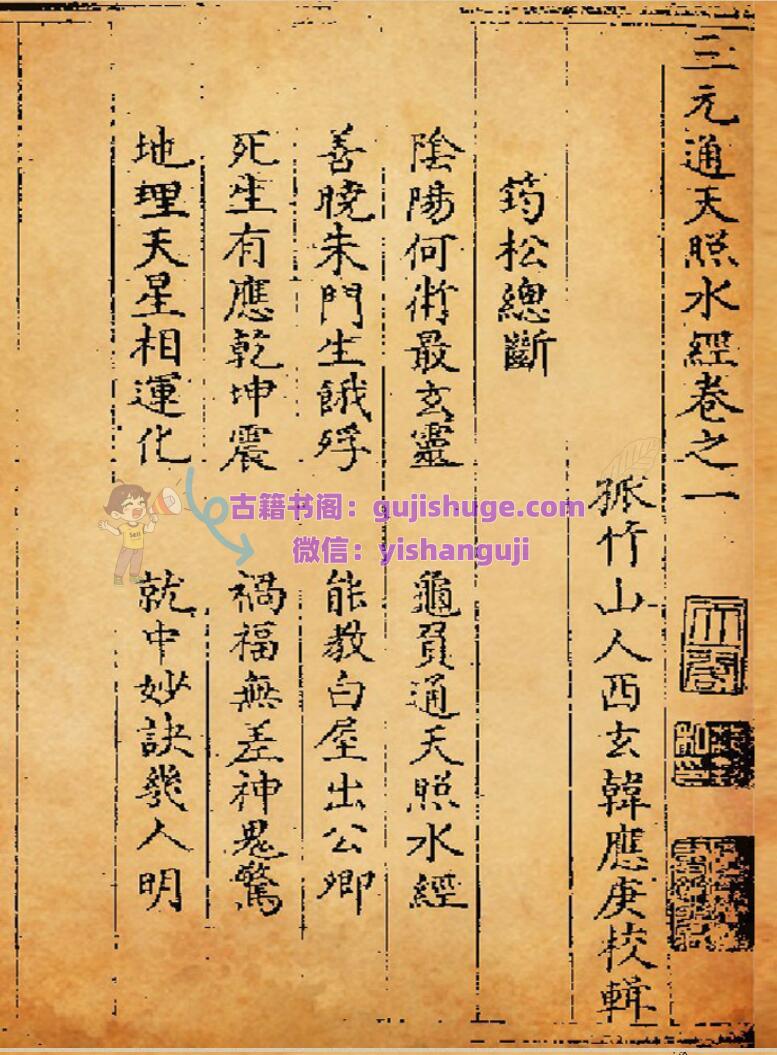 三元通天照水經卷之一
孤竹山人西玄韓應庚校輯
筠松總斷
陰陽何術最玄靈 龜負通天照水經
善曉朱門生餓殍 能教白屋出公卿
死生有應乾坤震 禍福無差神鬼驚
地理天星相運化 就中妙訣幾人明
古籍书阁：gujishuge.com
微信：yishanguji
Sell